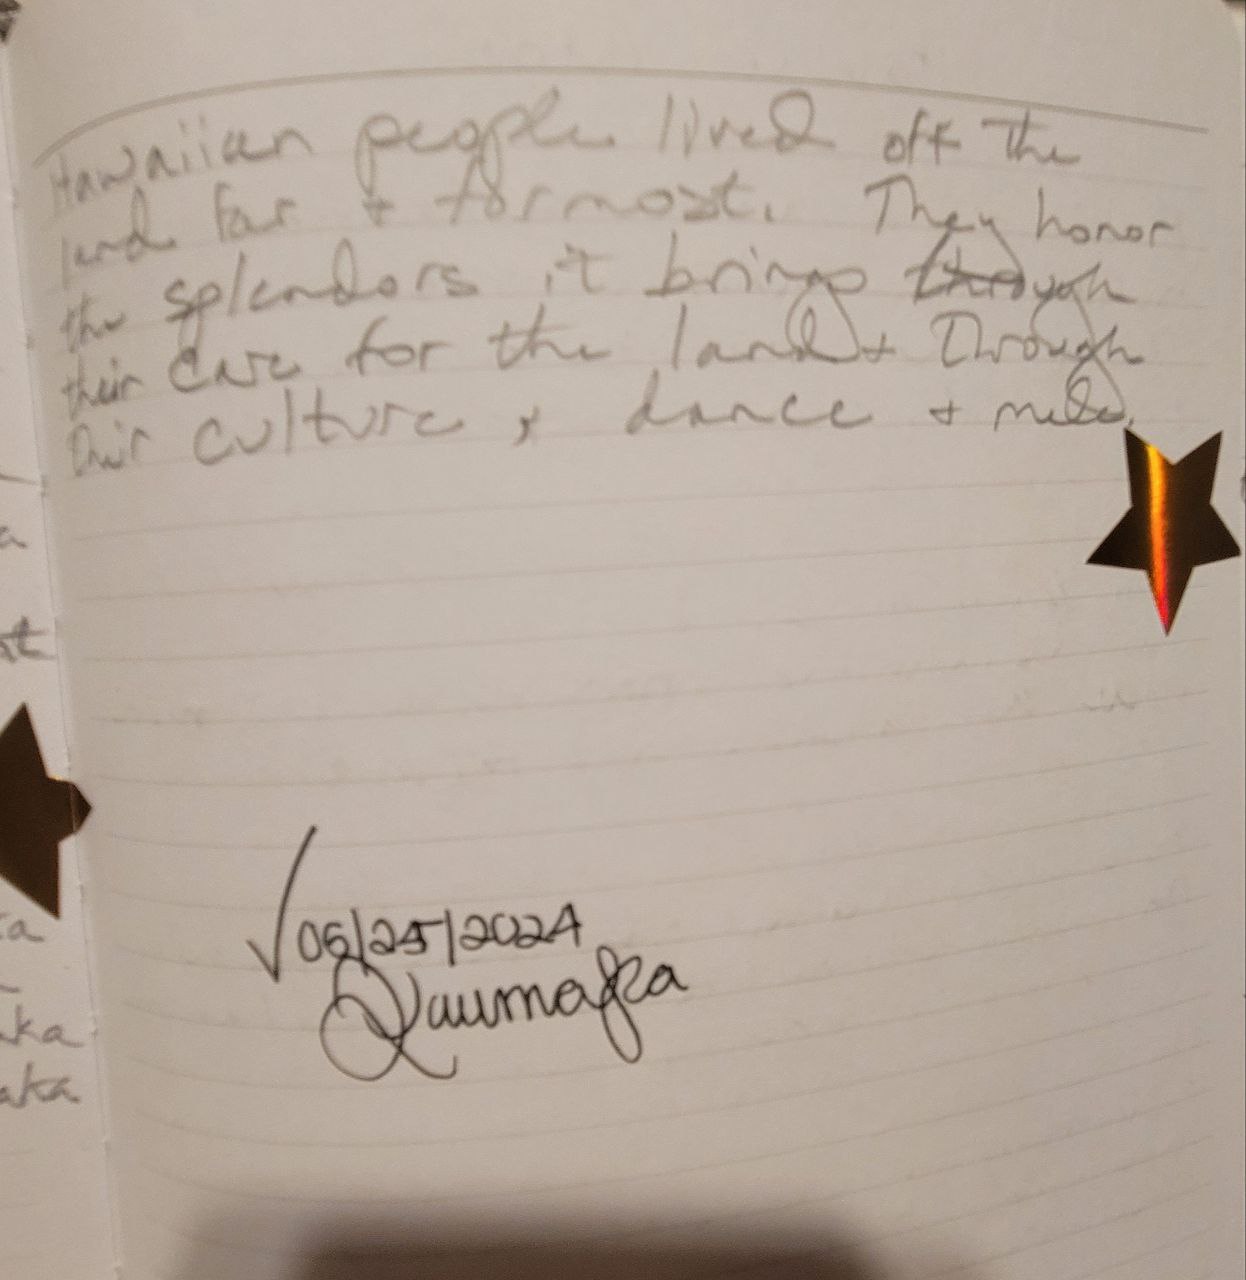 Hawaiian people lived off the
land far + formost. They honor
the splendors it brings through
their care for the land + through
their culture, dance + mele.
√06/25/2024
a
st
ka
aka
aka